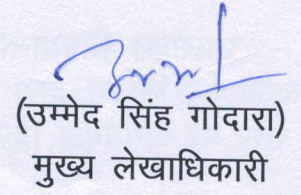 (उम्मेद सिंह गोदारा)
मुख्य लेखाधिकारी